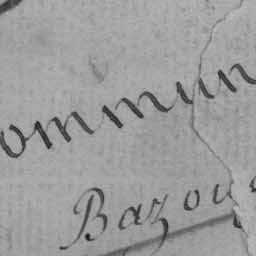 ommun
Bazoug